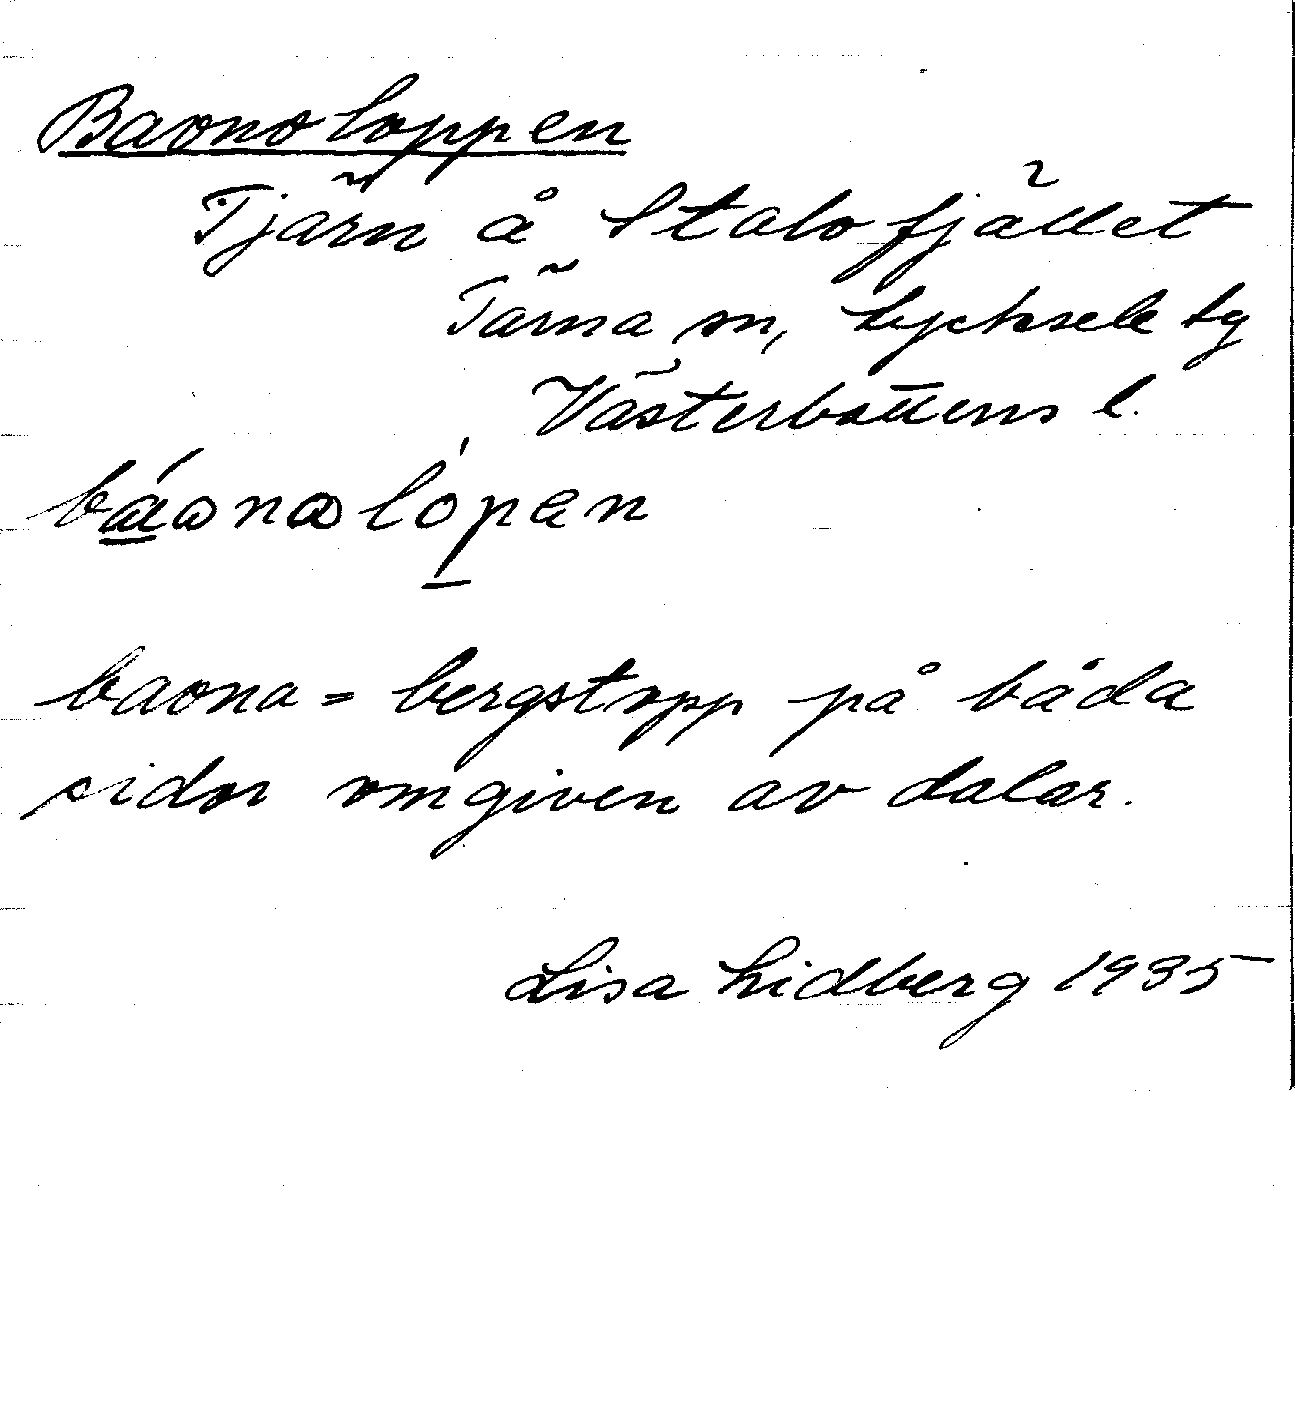 Baonoloppen
Tjärn å Stalofjället
Tärna sn, Lycksele tg
Västerbottens l.
báonalópen
baona = bergstopp på båda
sidor omgiven av dalar.
Lisa Lidberg 1935